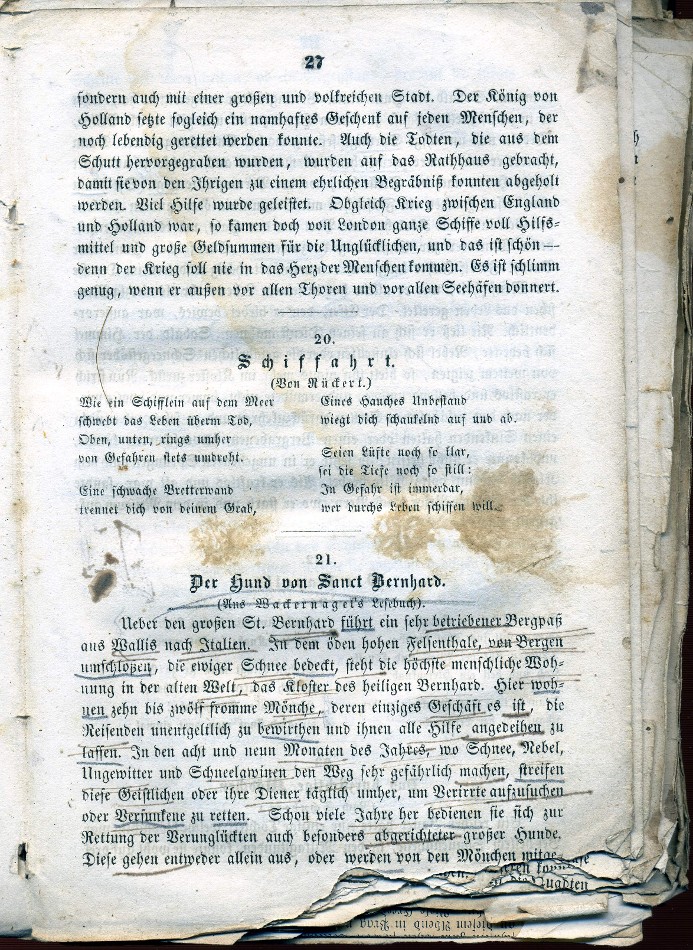 27
sondern auch mit einer großen und volkreichen Stadt. Der König von
Holland setzte sogleich ein namhaftes Geschenk auf jeden Menschen, der
noch lebendig gerettet werden konnte. Auch die Todten, die aus dem
Schutt hervorgegraben wurden, wurden auf das Rathhaus gebracht,
damit sie von den Ihrigen zu einem ehrlichen Begräbniß konnten abgeholt
werden. Viel Hilfe wurde geleistet. Obgleich Krieg zwischen England
und Holland war, so kamen doch von London ganze Schiffe voll Hilfs-
mittel und große Geldsummen für die Unglücklichen, und das ist schön —
denn der Krieg soll nie in das Herz der Menschen kommen. Es ist schlimm
genug, wenn er außen vor allen Thoren und vor allen Seehäfen donnert.
20.
Schiffahrt.
(Von Rückert.)
Wie ein Schifflein auf dem Meer
schwebt das Leben überm Tod,
Oben, unten, rings umher
von Gefahren stets umdroht.
Eine schwache Bretterwand
trennet dich von deinem Grab,
Eines Hauches Unbestand
wiegt dich schaukelnd auf und ab.
Seien Lüfte noch so klar,
sei die Tiefe noch so still:
In Gefahr ist immerdar,
wer durchs Leben schiffen will.
21.
Der Hund von Sanct Bernhard.
(Aus Wackernagel's Lesebuch).
Ueber den großen St. Bernhard führt ein sehr betriebener Bergpaß
aus Wallis nach Italien. In dem öden hohen Felsenthale, von Bergen
umschloßen, die ewiger Schnee bedeckt, steht die höchste menschliche Woh-
nung in der alten Welt, das Kloster des heiligen Bernhard. Hier woh-
nen zehn bis zwölf fromme Mönche, deren einziges Geschäft es ist, die
Reisenden unentgeltlich zu bewirthen und ihnen alle Hilfe angedeihen zu
lassen. In den acht und neun Monaten des Jahres, wo Schnee, Nebel,
Ungewitter und Schneelawinen den Weg sehr gefährlich machen, streifen
diese Geistlichen oder ihre Diener täglich umher, um Verirrte aufzusuchen
oder Versunkene zu retten. Schon viele Jahre her bedienen sie sich zur
Rettung der Verunglückten auch besonders abgerichteter großer Hunde.
Diese gehen entweder allein aus, oder werden von den Mönchen mitge-